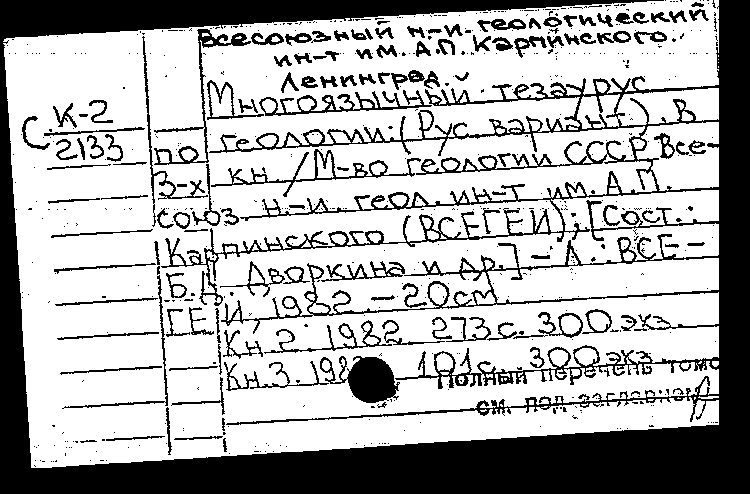 Всесоюзный н.-и. геологический
ин-т им. А.П. Карпинского.
Ленинград.
К-2
2133
Многоязычный тезаурус
по геологии: (Рус. вариант). В
3-х кн. / М-во геологии СССР, Все-
союз. н.-и. геол. ин-т им. А.П.
Карпинского (ВСЕГЕИ); [Сост.:
Б.Д. Дворкина и др.] - Л.: ВСЕ-
ГЕИ, 1982. - 20 см.
Кн. 2. 1982. 273 с. 300 экз.
Кн. 3. 101 с. 300 экз.
Полный перечень томо
см. под заглавием